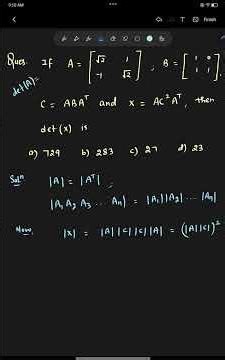 9:50 AM
Finish
Ques. If A = [√2 1; -1 √2], B = [1 0; 1 1],
det(A)=
C = ABAᵀ and X = AC²Aᵀ, then
det(X) is
a) 729 b) 283 c) 27 d) 23
Solⁿ |A| = |Aᵀ|,
|A₁ A₂ A₃ ... Aₙ| = |A₁||A₂| ... |Aₙ|
Now, |X| = |A||C||C||A| = (|A||C|)²